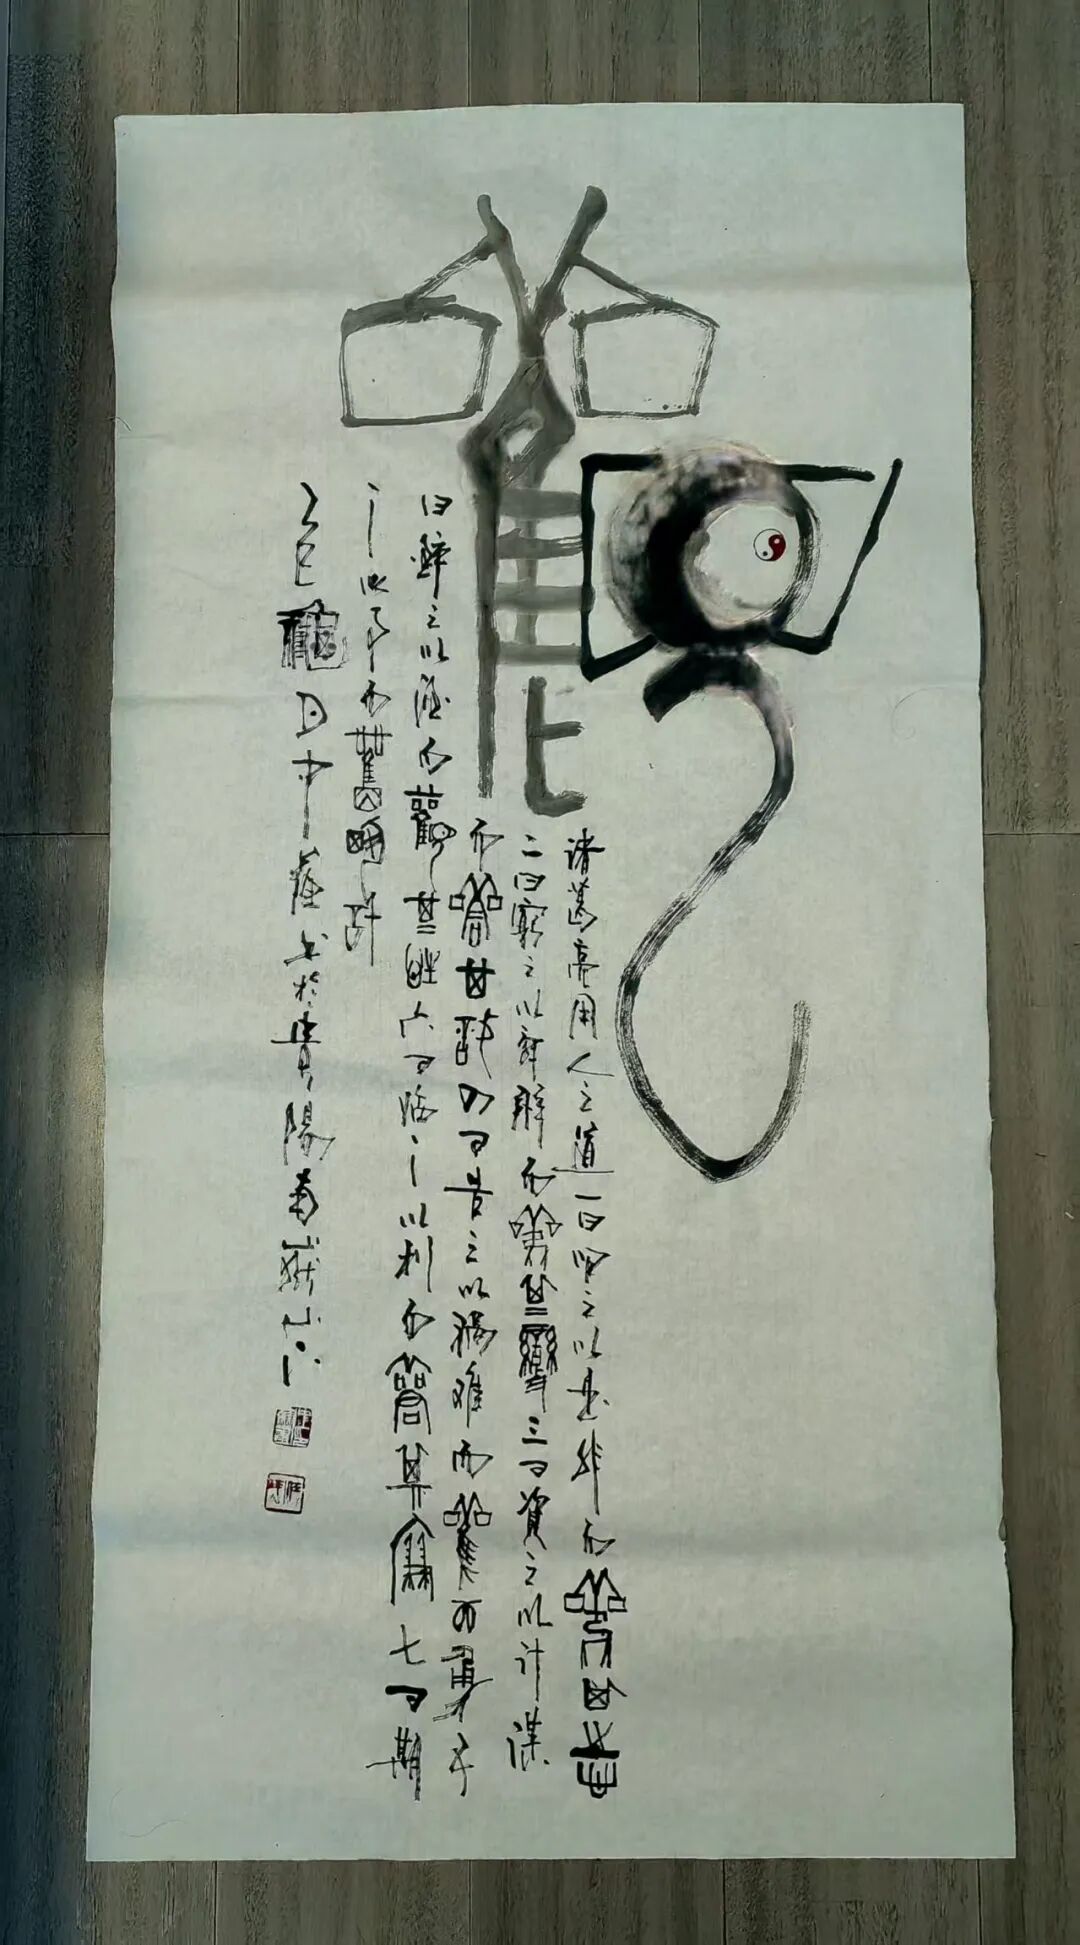 觀
诸葛亮用人之道一曰问之以是非而觀其志
二曰窮之以詞辯而觀其變三曰資之以计谋
而觀其識四曰告之以禍难而觀其勇五
曰醉之以酒而觀其性六曰臨之以利而觀其廉七曰期
之以事而觀其信
乙巳龝日中书於貴陽南嶽山下